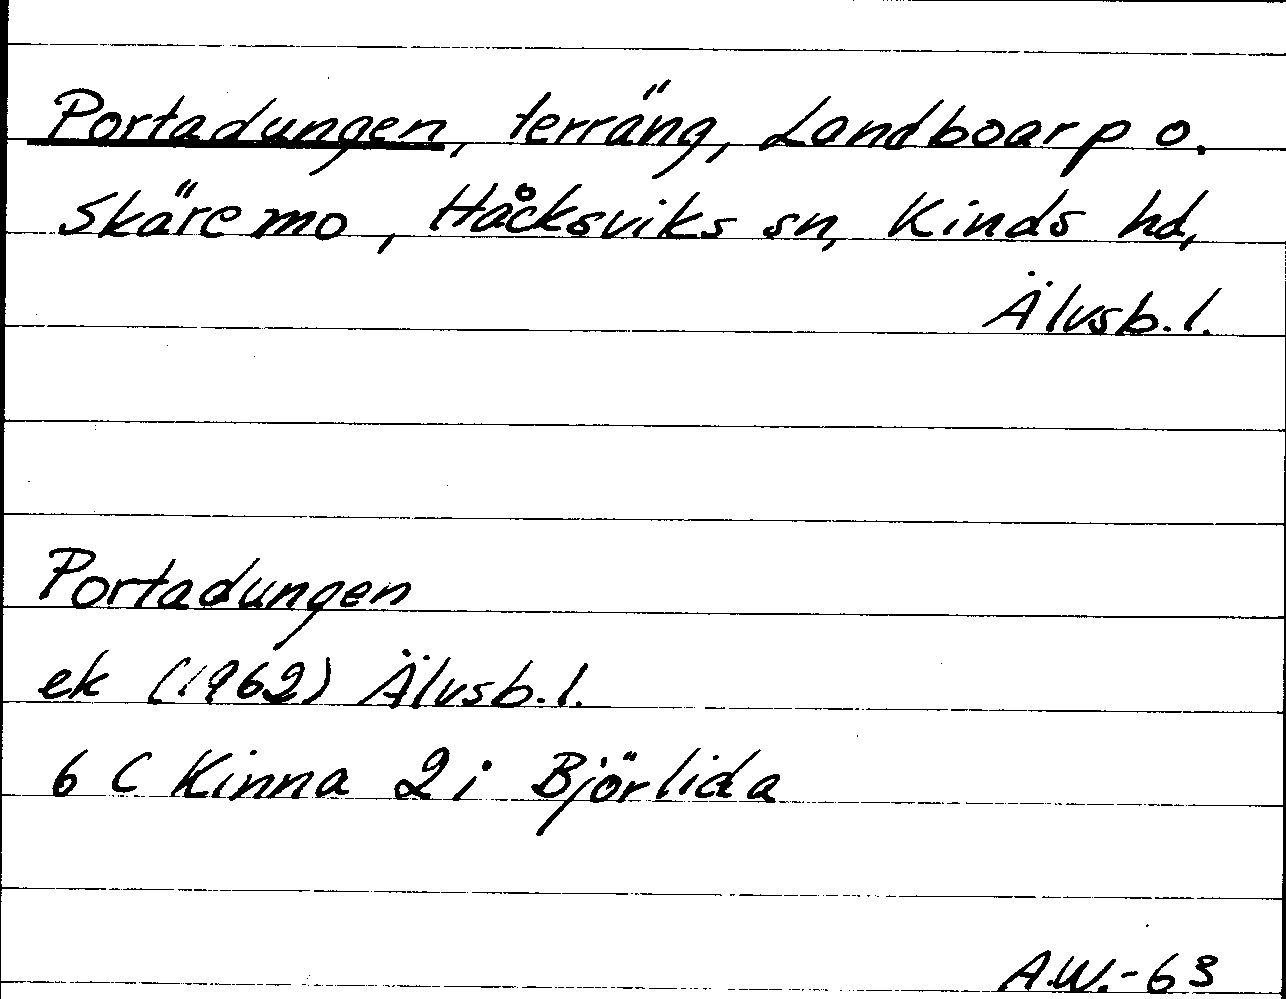 Portadungen, terräng, Landboarp o.
Skäremo, Håcksviks sn, Kinds hd,
Älvsb.l.
Portadungen
ek (1962) Älvsb.l.
6 C Kinna 2 i Björlida
A.W.-63